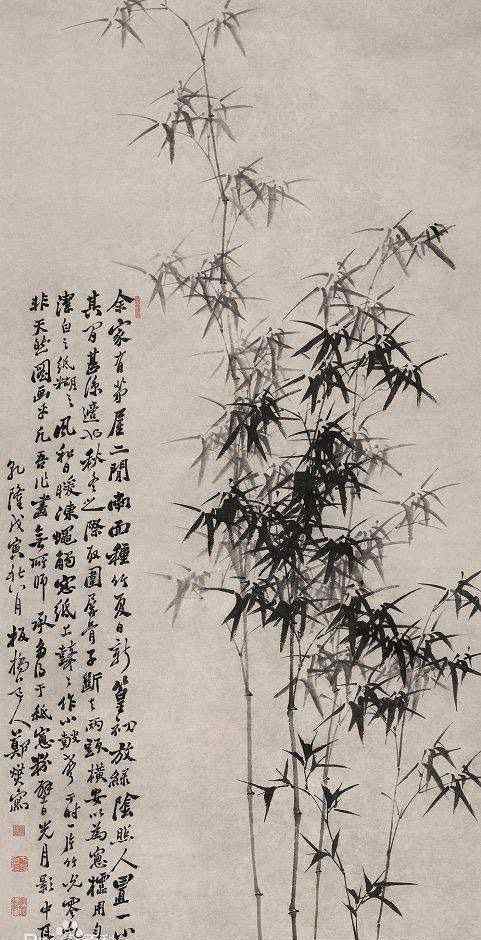 余家有茅屋二間南面種竹夏日新篁初放綠陰照人置一小
其間甚涼適也秋冬之際取圍屏骨子斷之兩頭橫安以為窗櫺用
潔白之紙糊之風和日暖凍蠅觸窗紙上鼕々作小鼓聲于時一片竹影零亂
非天然圖畫乎凡吾作畫無所師承多得于紙窗粉壁日光月影中耳
乾隆戊寅秋月板橋道人鄭燮寫